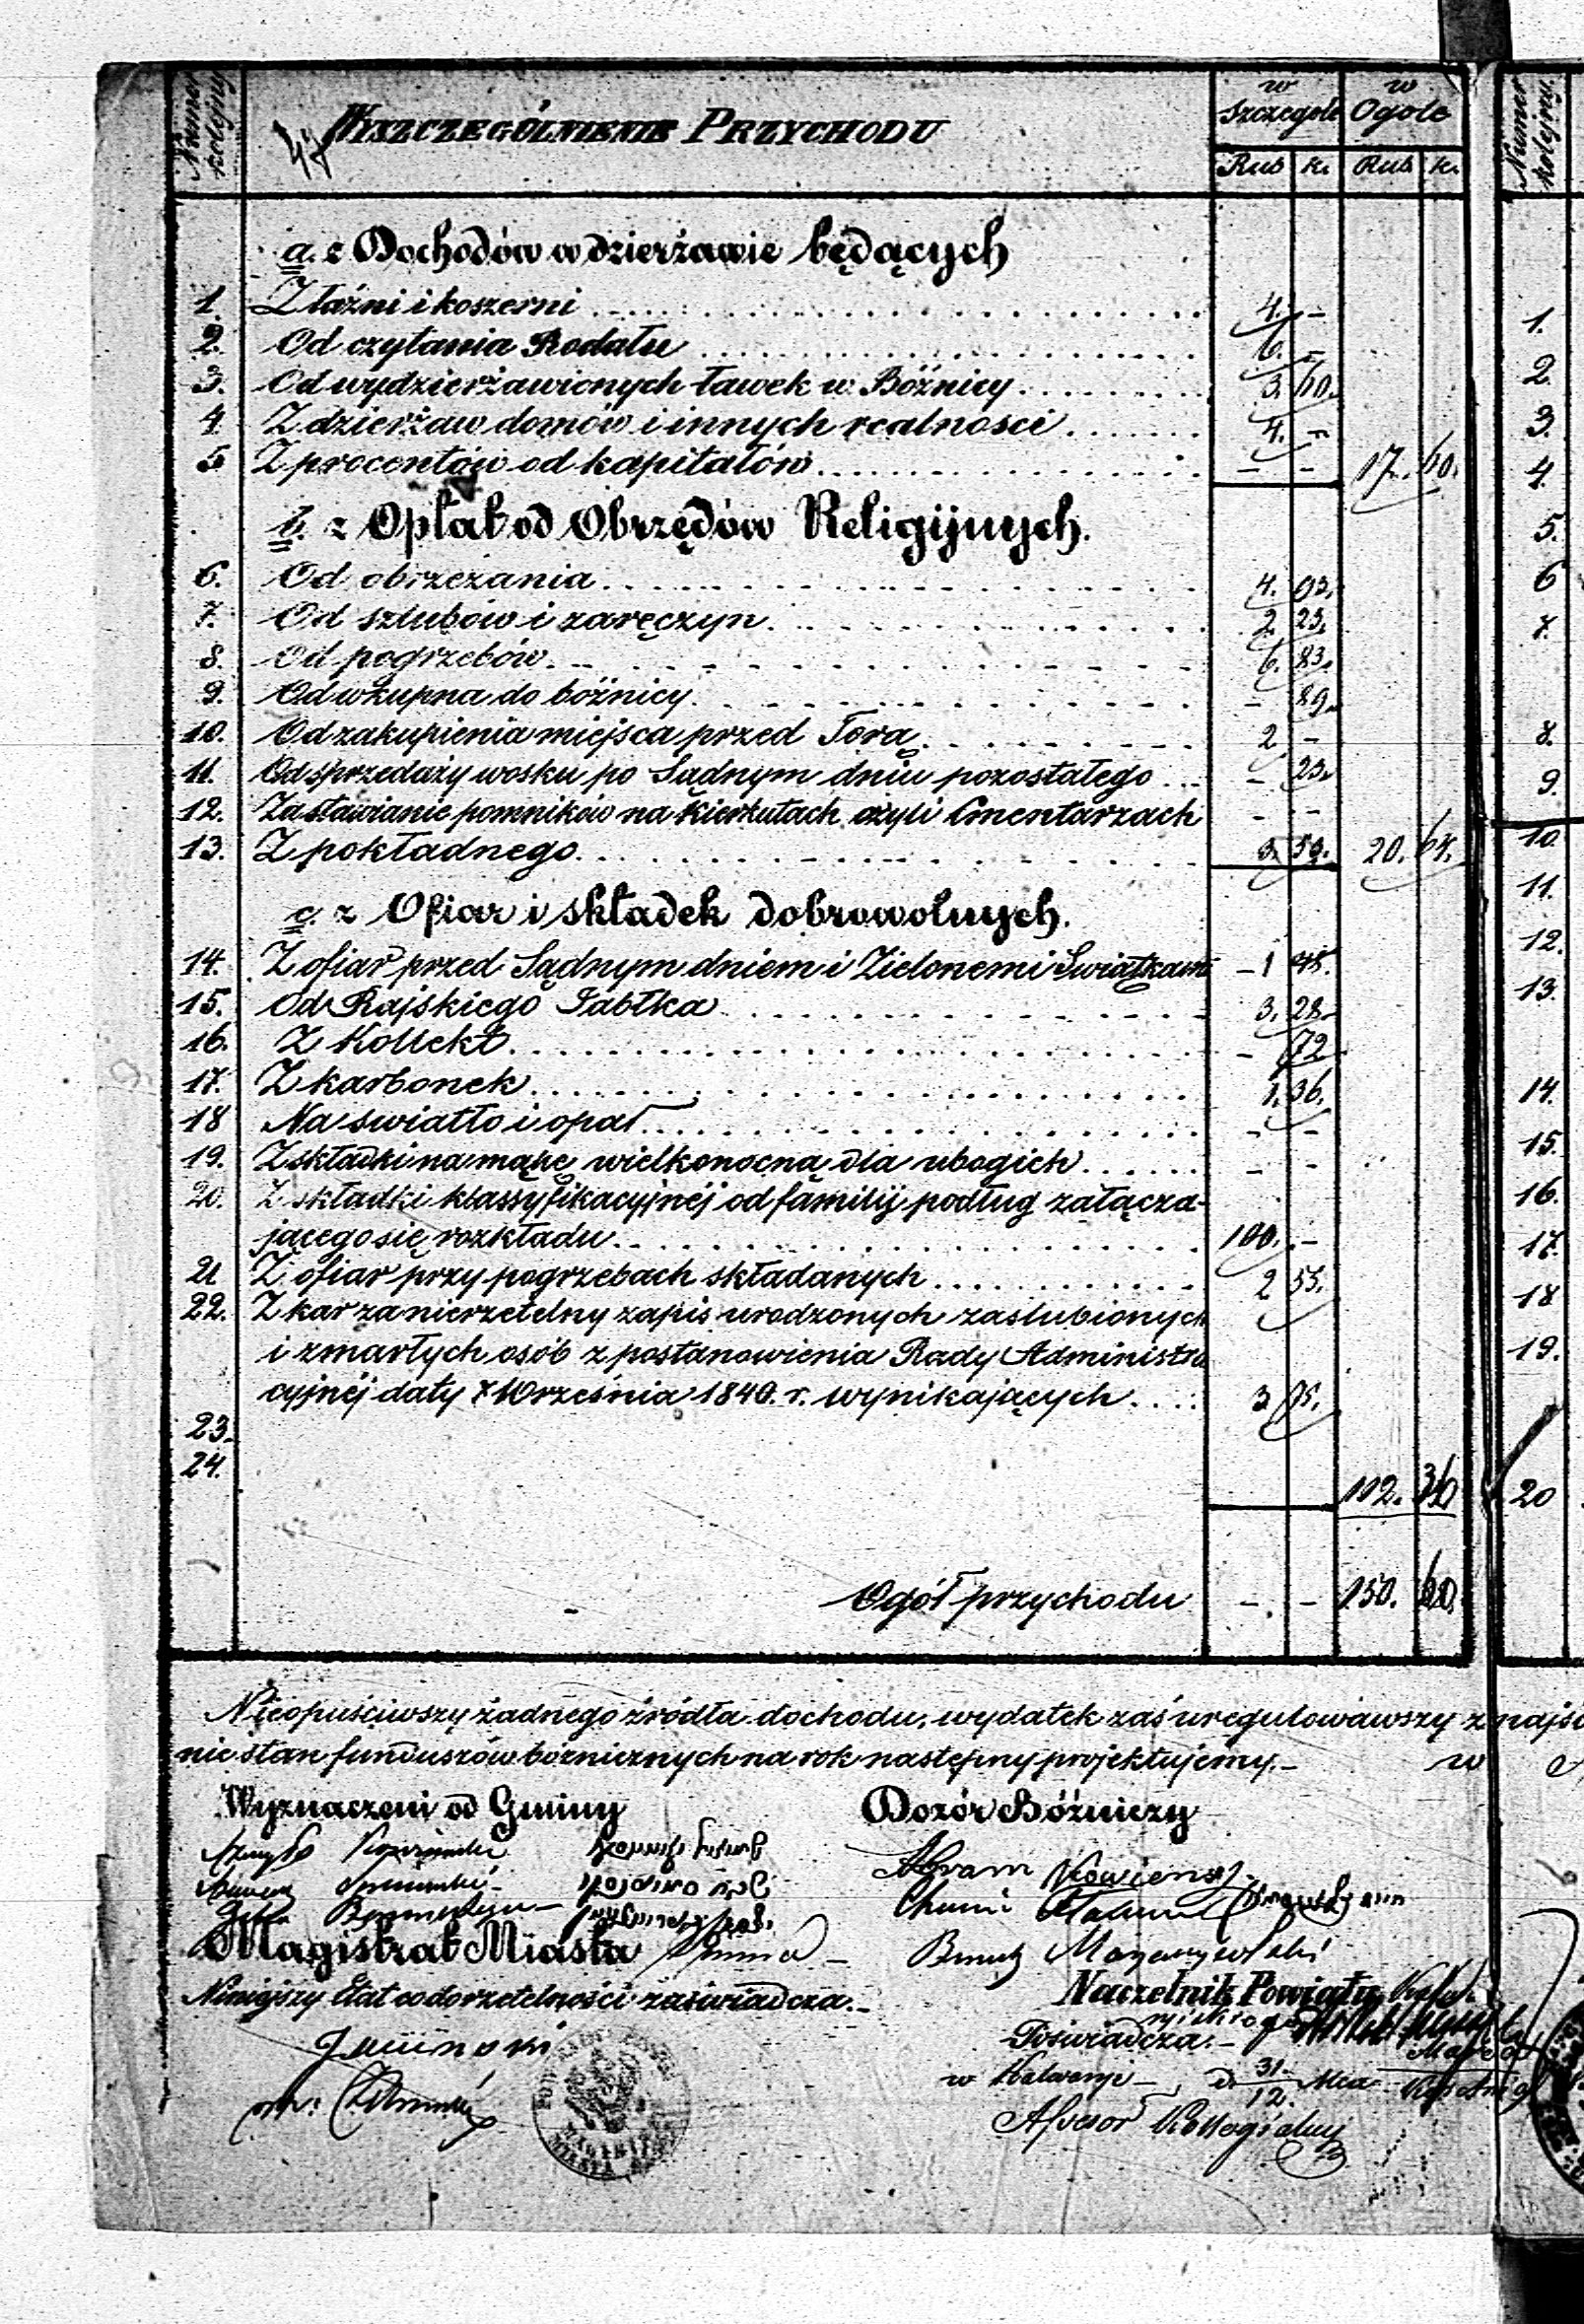 Numer kolejny
WYSZCZEGÓLNIENIE PRZYCHODU
w Szczegole
w Ogole
Rub k. Rub k.
a. z Dochodów w dzierżawie będących
1. Z łaźni i koszerni 4. –
2. Od czytania Rodału 6. –
3. Od wydzierżawionych ławek w Bóżnicy 3. 60.
4. Z dzierżaw domów i innych realności 4. –
5 Z procentów od kapitałów – – 17. 60.
b. z Opłat od Obrzędów Religijnych.
6. Od obrzezania 4. 03.
7. Od szlubów i zaręczyn 2. 23.
8. Od pogrzebów 6. 83.
9. Od wkupna do bóżnicy – 89.
10. Od zakupienia miejsca przed Torą 2 –
11. Od sprzedaży wosku po Sądnym dniu pozostałego – 23.
12. Za stawianie pomników na Kierkutach czyli Cmentarzach – –
13. Z pokładnego 59. 20. 64.
c. z Ofiar i składek dobrowolnych.
14. Z ofiar przed Sądnym dniem i Zielonemi Swiątkami – 1 45.
15. Od Rajskiego Jabłka 3. 28.
16. Z Kollekt – 72
17. Z karbonek 1. 36.
18 Na swiatło i opał – –
19. Z składki na mąkę wielkonocną dla ubogich – –
20. Z składki klassyfikacyjnéj od familij podług załącza-
jącego się rozkładu 100. –
21 Z ofiar przy pogrzebach składanych 2 55.
22. Z kar za nierzetelny zapis urodzonych zaslubionych
i zmarłych osób z postanowienia Rady Administra
cyjnéj daty 7 Września 1840. r. wynikających 3
23.
24.
112. 36
Ogół przychodu –. – 150. 60.
Nieopuściwszy żadnego źródła dochodu, wydatek zaś uregulowawszy z najsc
nie stan funduszów bożnicznych na rok następny projektujemy.– w
Wyznaczeni od Gminy
Dozór Bóżniczy
Abram
Magistrat Miasta
Niniejszy Etat co do rzetelności zaświadcza.–
Naczelnik Powiatu
Poświadcza.–
w Kalwaryi – d. 31/12.
Assesor Kollegialny
1.
2.
3.
4.
5.
6
7.
8.
9.
10.
11.
12.
13.
14.
15.
16.
17.
18
19.
20